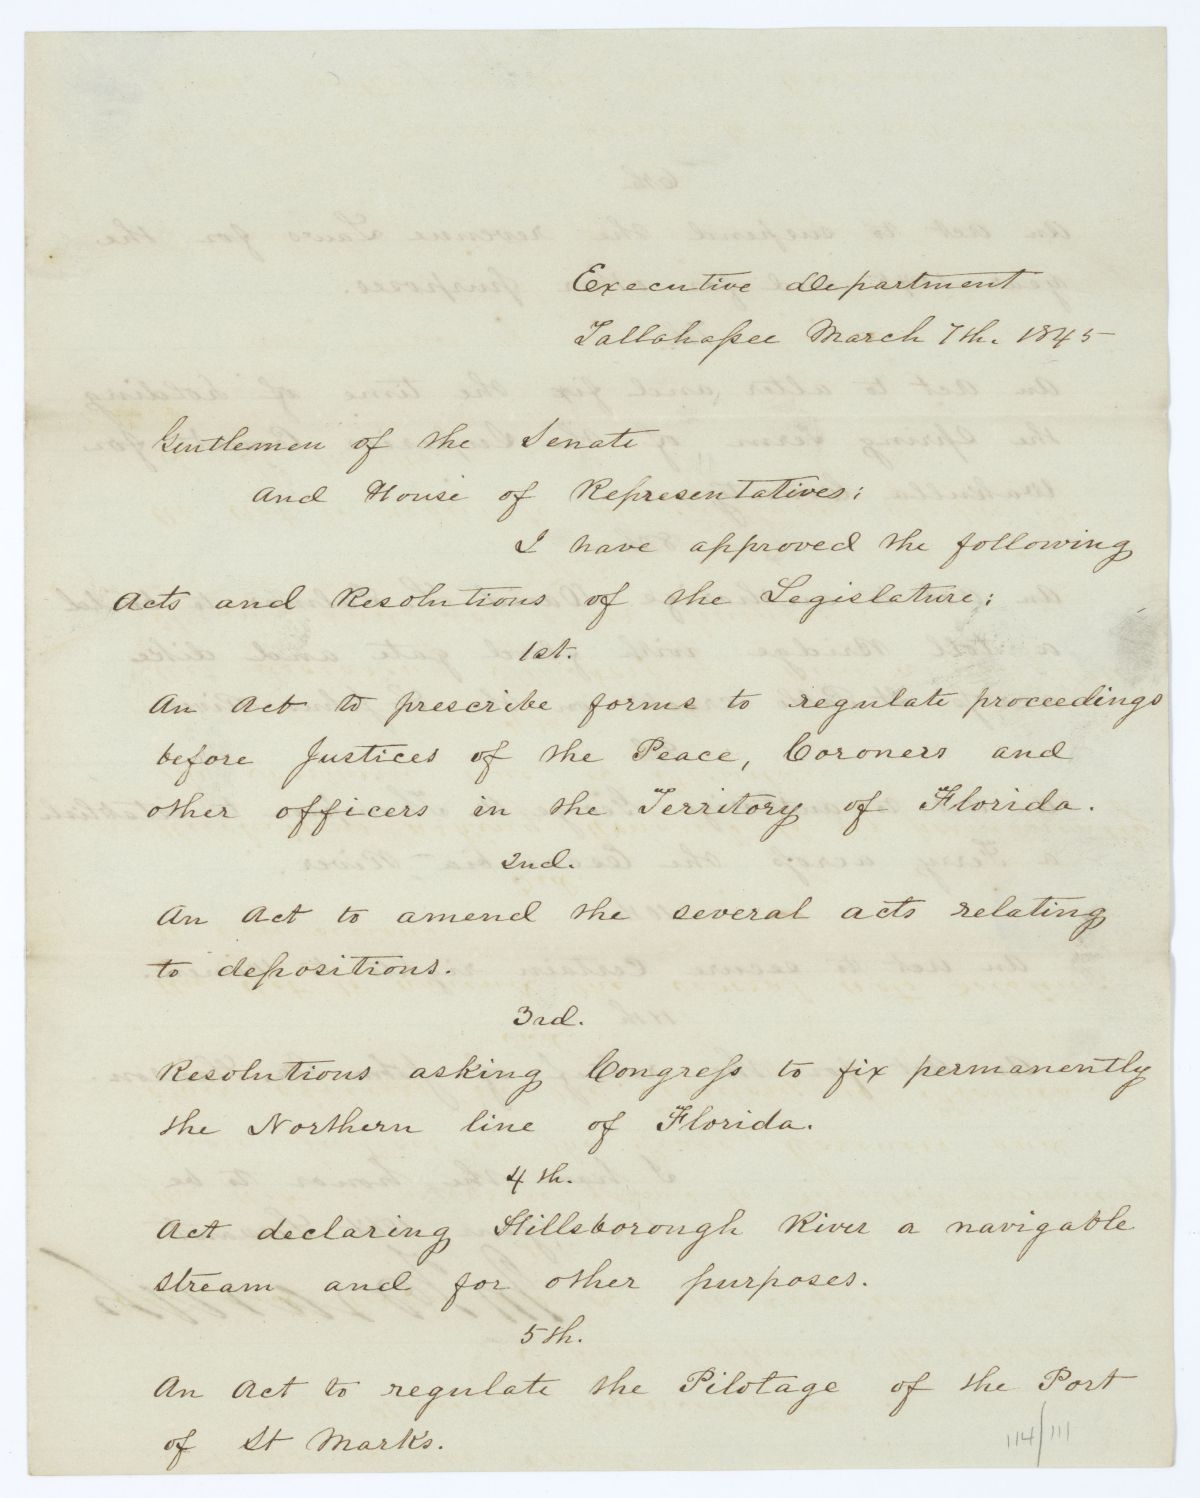 Executive Department
Tallahassee March 7th. 1845
Gentlemen of the Senate
and House of Representatives;
I have approved the following
Acts and Resolutions of the Legislature;
1st.
An Act to prescribe forms to regulate proceedings
before Justices of the Peace, Coroners and
other officers in the Territory of Florida.
2nd.
An Act to amend the several acts relating
to depositions.
3rd.
Resolutions asking Congress to fix permanently
the Northern line of Florida.
4th.
Act declaring Hillsborough River a navigable
stream and for other purposes.
5th.
An Act to regulate the Pilotage of the Port
of St Marks.
114/111